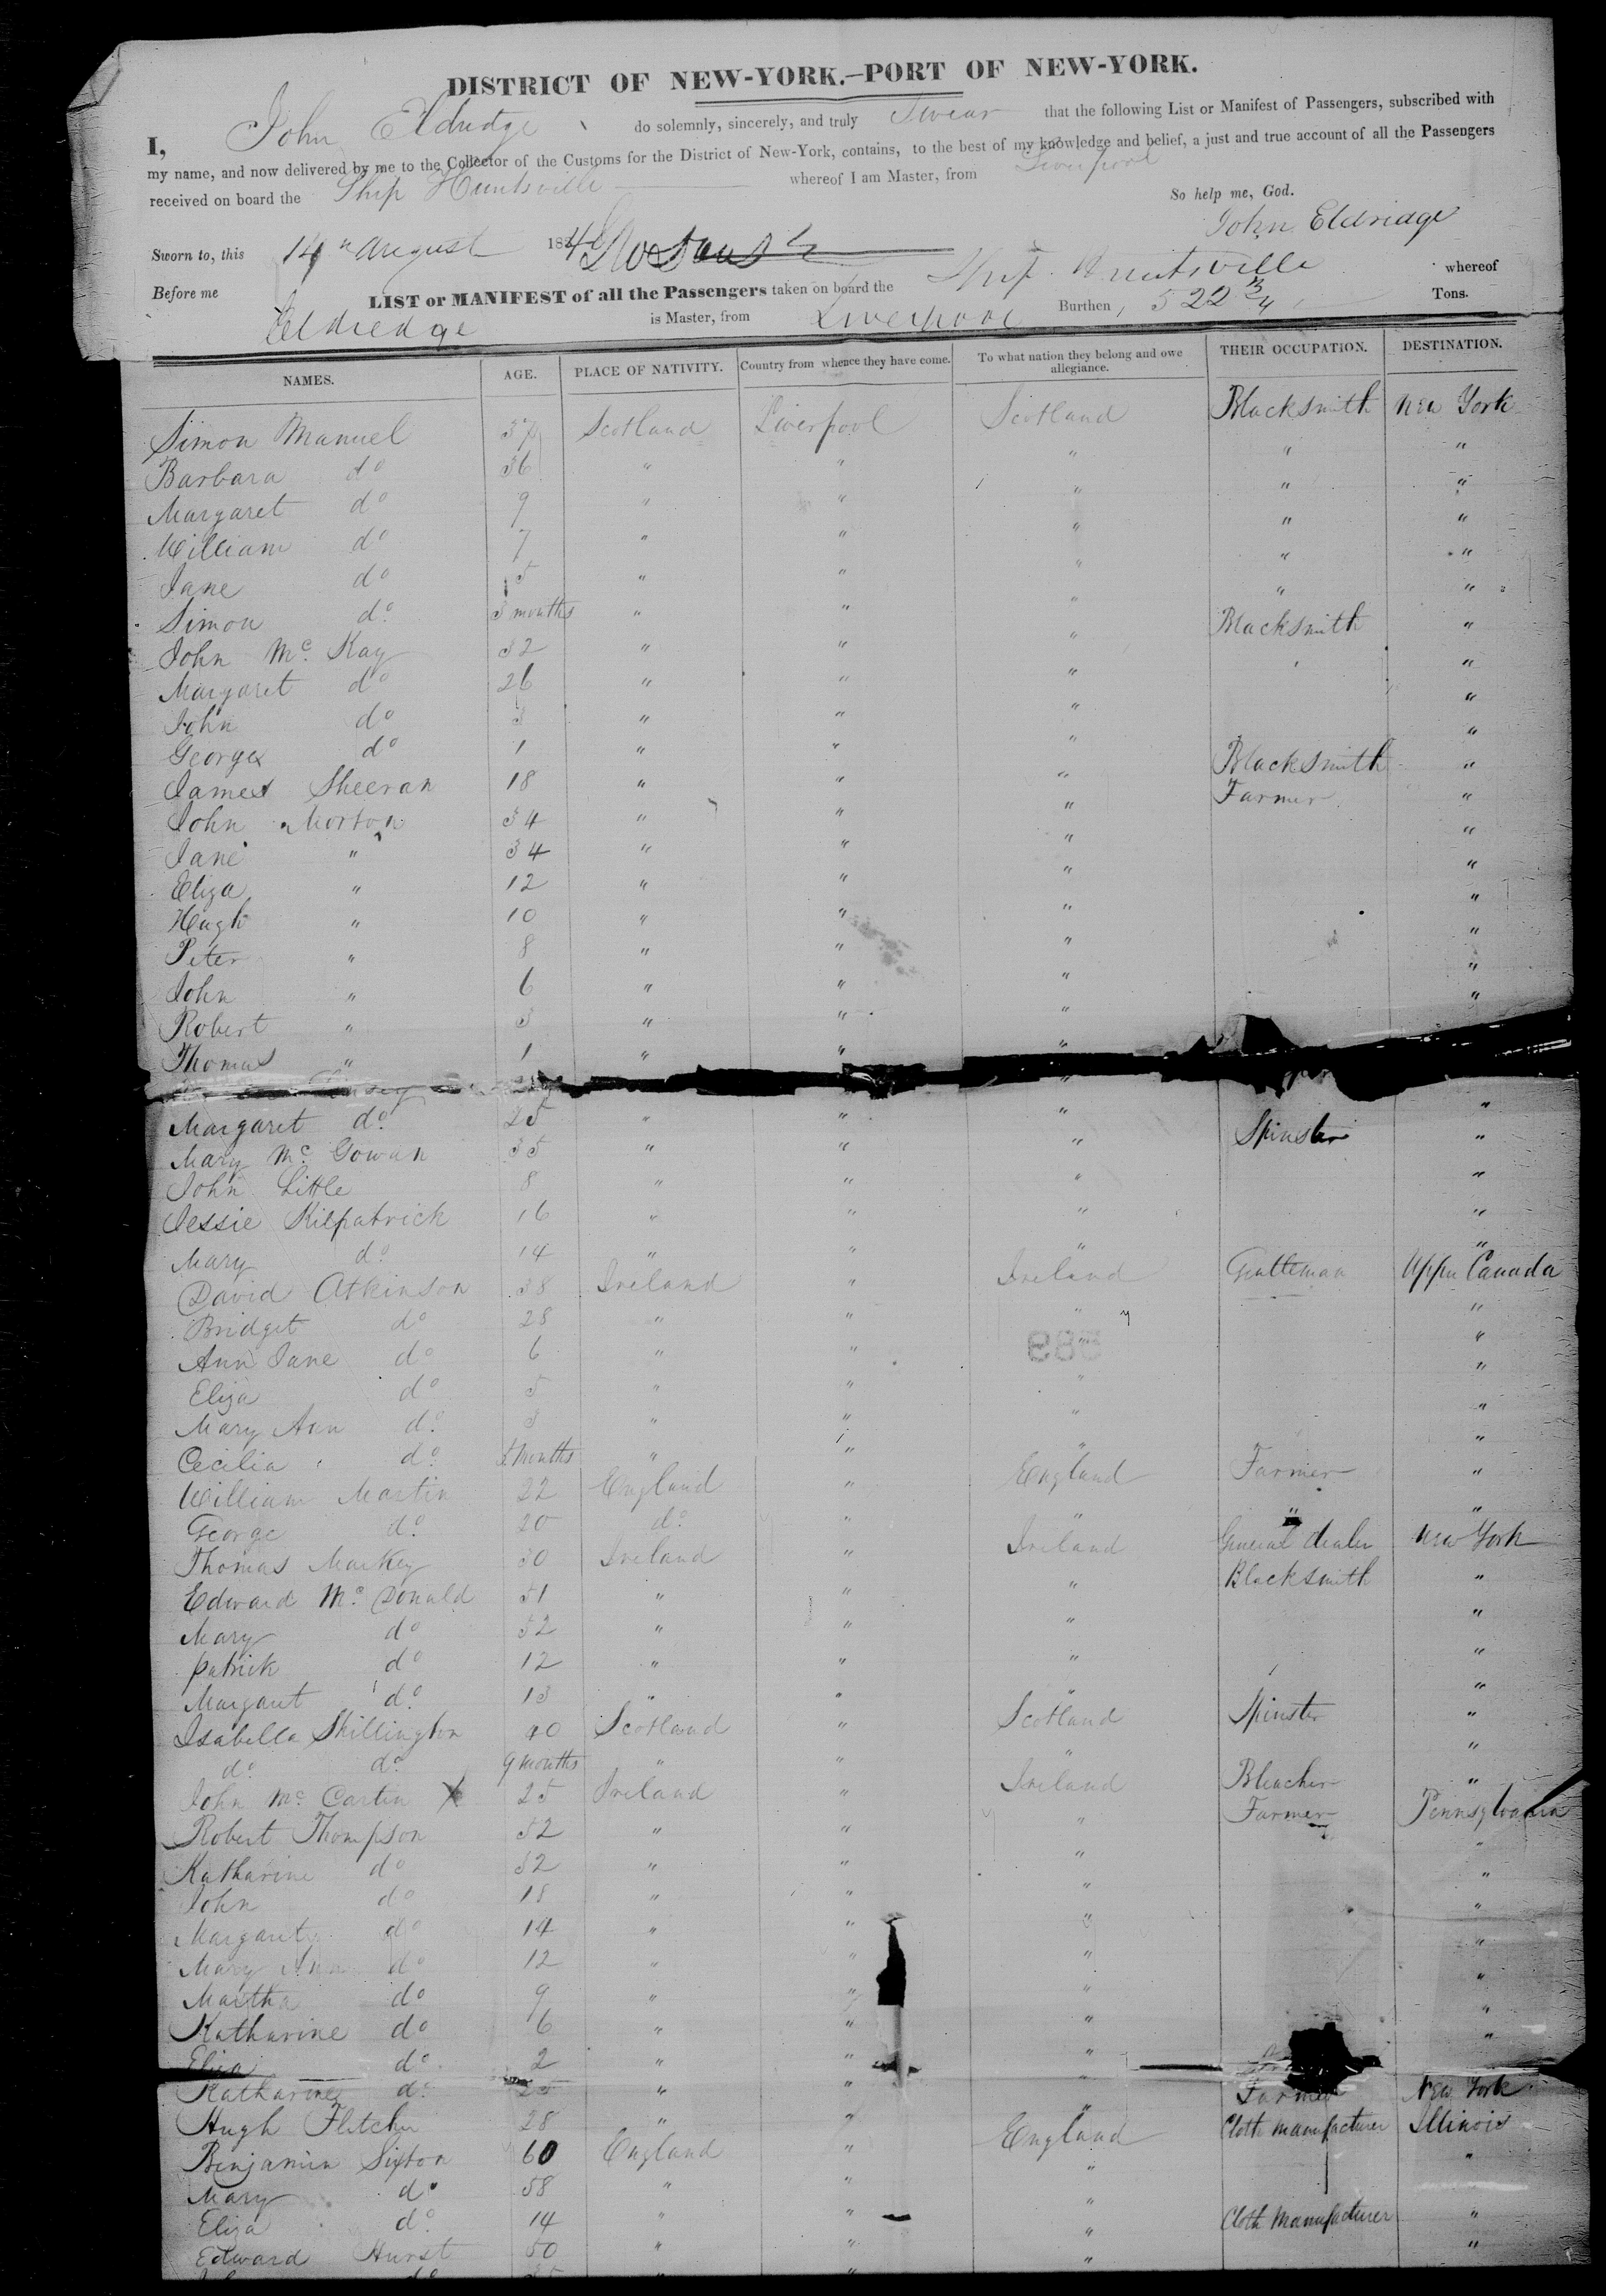 DISTRICT OF NEW-YORK.—PORT OF NEW-YORK.
I, John Eldridge do solemnly, sincerely, and truly Swear that the following List or Manifest of Passengers, subscribed with
my name, and now delivered by me to the Collector of the Customs for the District of New-York, contains, to the best of my knowledge and belief, a just and true account of all the Passengers
received on board the Ship Huntsville whereof I am Master, from Liverpool
So help me, God.
Sworn to, this 14th August 184 John Eldridge
Before me
LIST or MANIFEST of all the Passengers taken on board the Ship Huntsville whereof
Eldredge is Master, from Liverpool Burthen, 522 3/4 Tons.
NAMES. AGE. PLACE OF NATIVITY. Country from whence they have come. To what nation they belong and owe allegiance. THEIR OCCUPATION. DESTINATION.
Simon Manuel 37 Scotland Liverpool Scotland Blacksmith New York
Barbara do 36 " " " " "
Margaret do 9 " " " " "
William do 7 " " " " "
Jane do 5 " " " " "
Simon do. 3 months " " " " "
John Mc. Kay 32 " " " Blacksmith "
Margaret do 26 " " " "
John do 3 " " " "
George do 1 " " " "
James Sheeran 18 " " " Blacksmith "
John Morton 34 " " " Farmer "
Jane " 34 " " " "
Eliza " 12 " " " "
Hugh " 10 " " " "
Peter " 8 " " " "
John " 6 " " " "
Robert " 3 " " " "
Thomas " 1 " " "
Margaret do. 25 " " " "
Mary Mc. Gowan 35 " " " Spinster "
John Little 8 " " " "
Jessie Kilpatrick 16 " " " "
Mary do. 14 " " " "
David Atkinson 38 Ireland " Ireland Gentleman Upper Canada
Bridget do 28 " " " "
Ann Jane do 6 " " " "
Eliza do 5 " " " "
Mary Ann do. 3 " " " "
Cecilia do. months " " " "
William Martin 22 England " England Farmer "
George do. 20 do. " " " "
Thomas Markey 30 Ireland " Ireland General dealer New York
Edward Mc. Donald 51 " " " Blacksmith "
Mary do 52 " " " "
Patrick do 12 " " " "
Margaret do. 13 " " " "
Isabella Skillington 40 Scotland " Scotland Spinster "
do. do. 9 months " " " "
John Mc. Carten X 25 Ireland " Ireland Bleacher "
Robert Thompson 52 " " " Farmer Pennsylvania
Katharine do 52 " " " "
John do 18 " " " "
Margaret do 14 " " " "
Mary Ann do 12 " " " "
Martha do 9 " " " "
Katharine do 6 " " " "
Eliza do. 2 " " " "
Katharine do. 25 " " "
Hugh Fletcher 28 " " " Farmer New York
Benjamin Sixton 60 England " England Cloth Manufacturer Illinois
Mary do 58 " " " "
Eliza do. 14 " " " "
Edward Hurst 50 " " " Cloth Manufacturer "